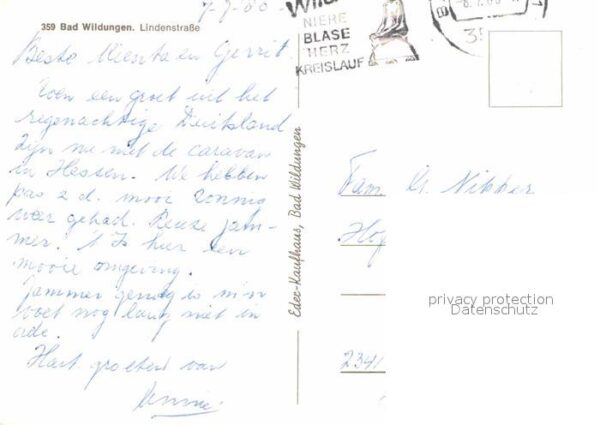 7-7-80-
359 Bad Wildungen. Lindenstraße
NIERE
BLASE
HERZ
KREISLAUF
Beste Mienta en Gerrit.
een groet uit het
regenachtige Duitsland
Zijn nu met de caravan
in Hessen. We hebben
pas 2 d. mooi zonnig
weer gehad. Reuze jam-
mer. 't Is hier een
mooie omgeving.
Jammer genoeg is m'n
voet nog lang niet in
orde.
Hart. groeten van
Edee-Kaufhaus, Bad Wildungen
Fam. G.
2341
privacy protection
Datenschutz